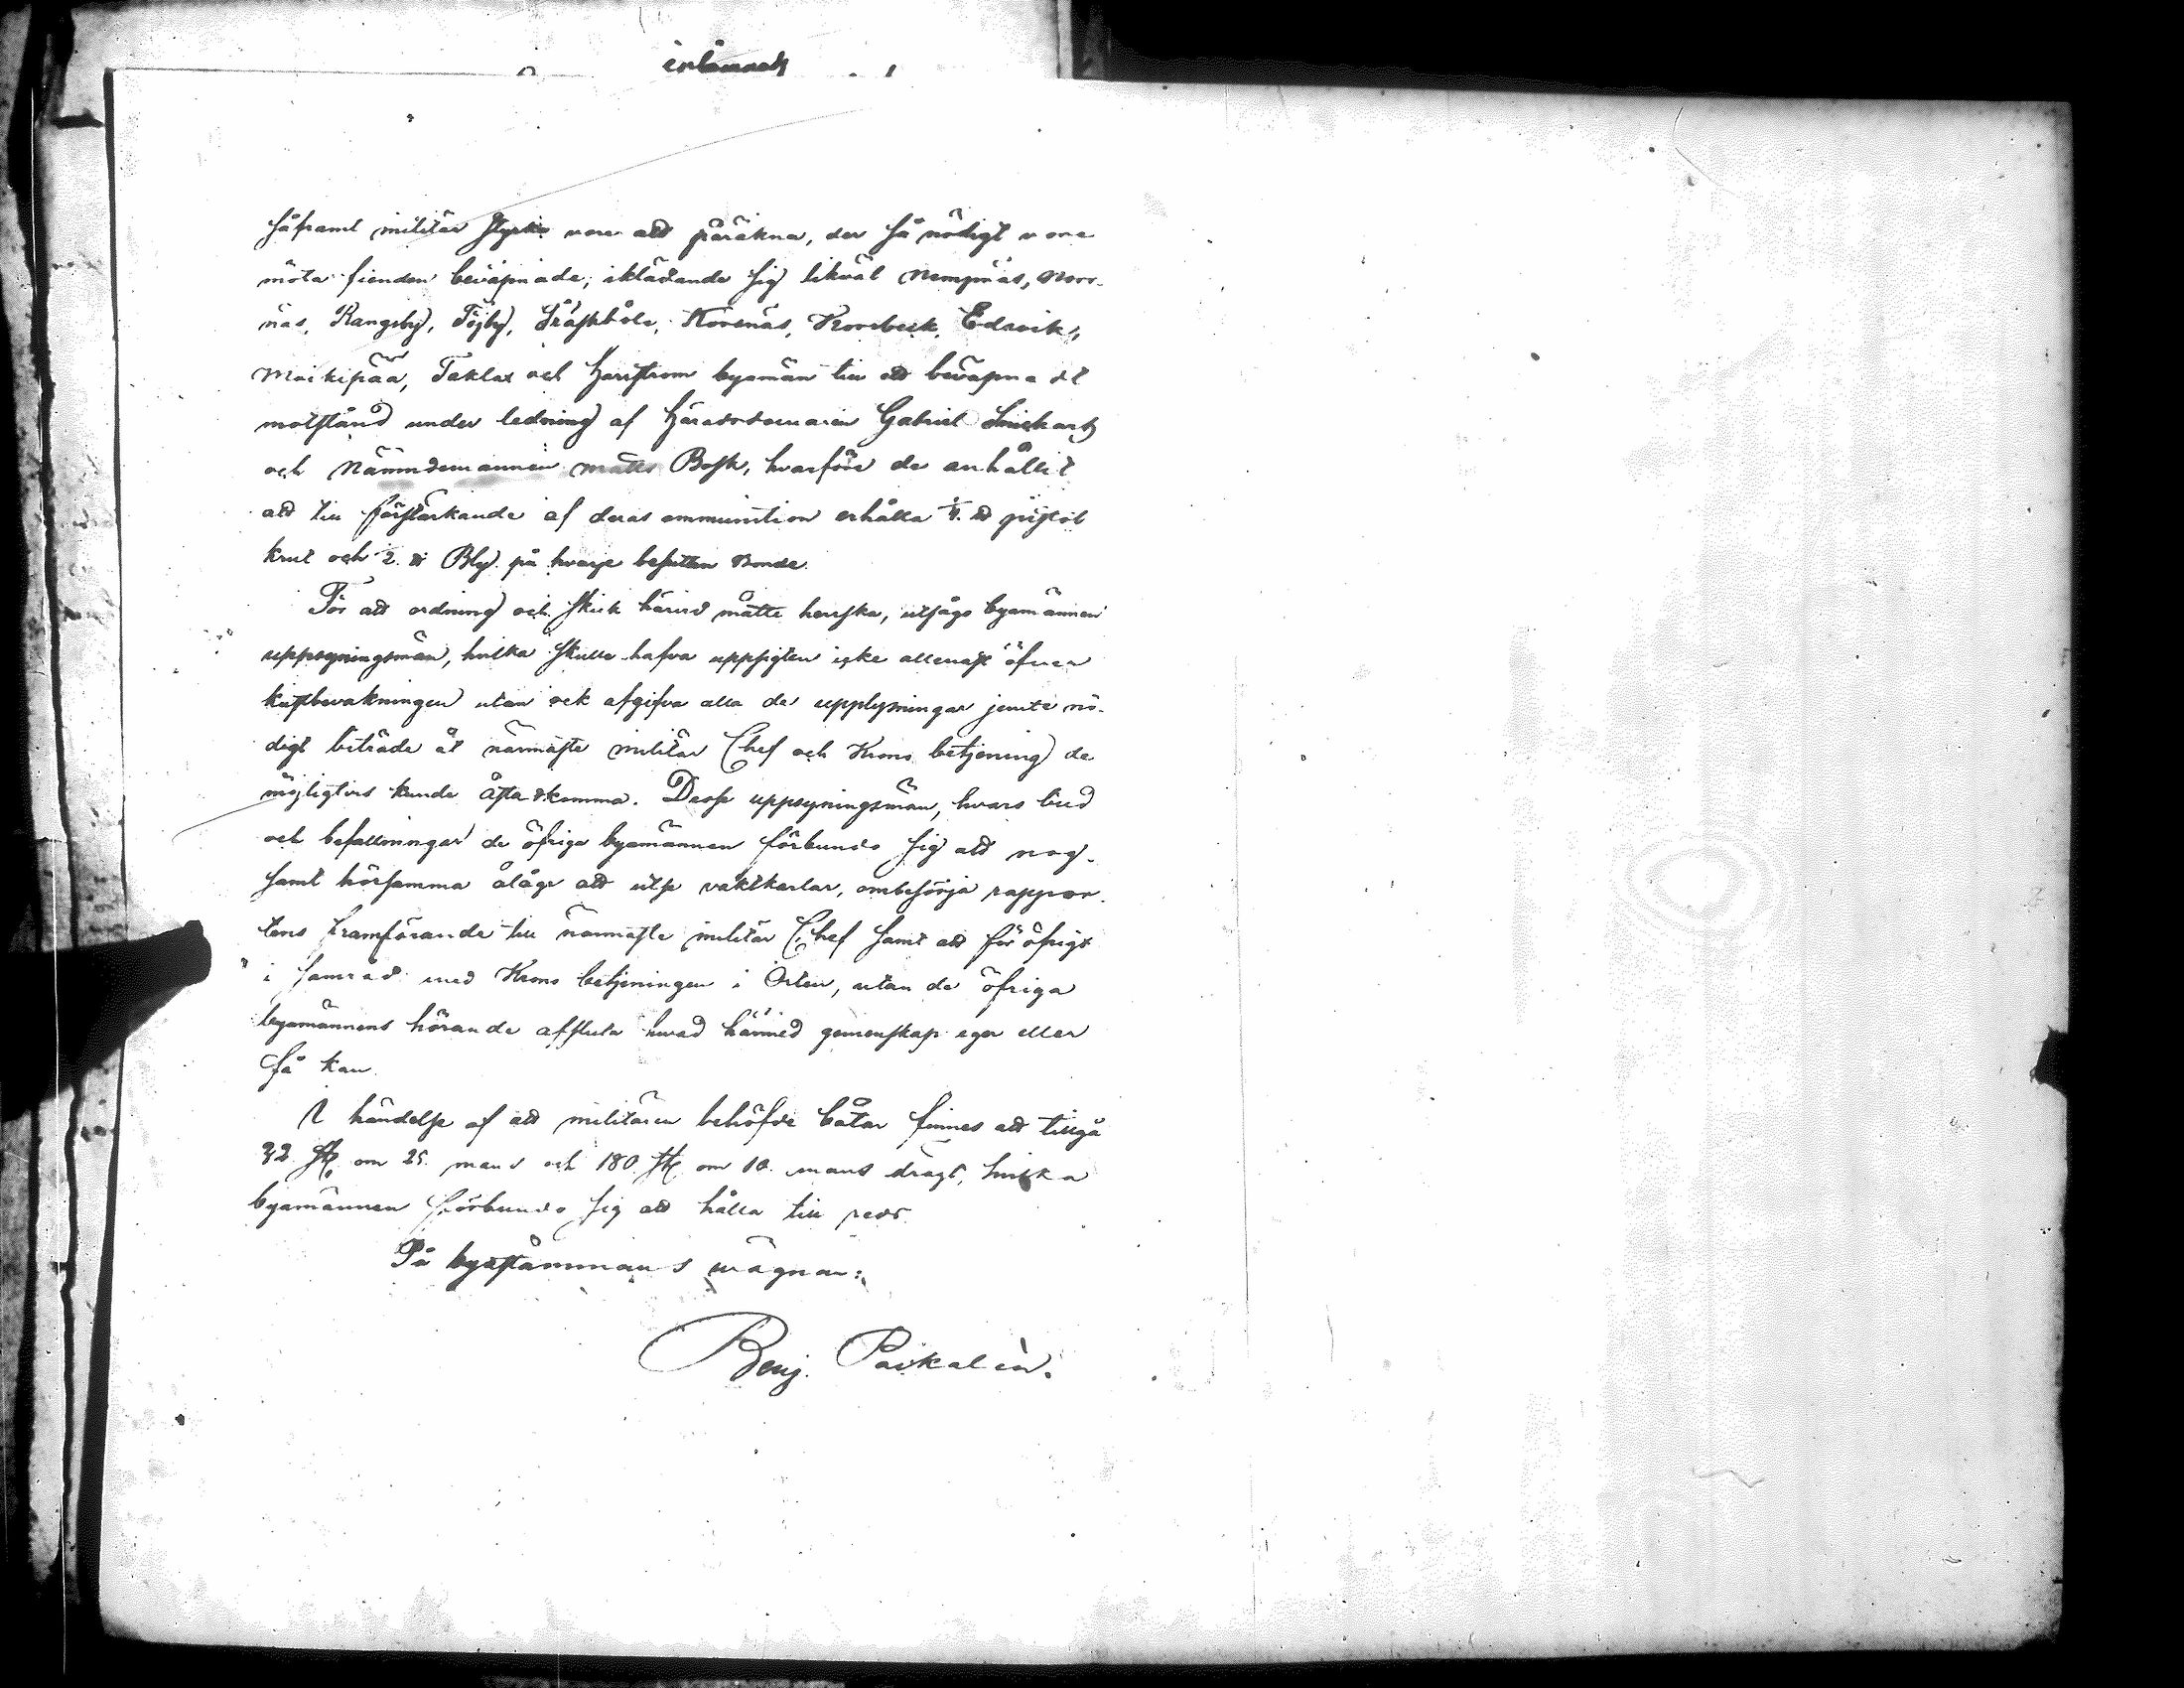 inlämnats
såframt militär styrka vore att påräkna, der så nödigt vore
möta fienden beväpnade; iklädande sig likväl Nempnäs, Norr-
näs, Rangsby, Töjby, Träskböle, Korsnäs, Korsbeck, Edsvik,
Moikipää, Taklax och Harrström byamän till att beväpnadt
motstånd under ledning af Häradsdomaren Gabriel
och Nämndemannen Matts Bosk, hvarföre de anhållit
att till förstärkande af deras ammunition erhålla ℔ pistol
krut och 2. ℔ Bly på hvarje besutten Bonde.
För att ordning och skick härvid måtte herrska, utsågs byamännen
uppsyningsmän, hvilka skulle hafva uppsigten icke allenast öfver
kustbevakningen utan ock afgifva alla de upplysningar jemte nö-
digt biträde åt närmaste militär Chef och Krono betjening de
möjligtvis kunde åstadkomma. Desse uppsyningsmän, hvars bud
och befallningar de öfriga byamännen förbundo sig att nog-
samt hörsamma ålåge att utse vaktkarlar, ombesörja rappor-
tens framförande till närmaste militär Chef samt att för öfrigt
i samråd med Krono betjeningen i Orten, utan de öfriga
byamännens hörande afsluta hvad härmed gemenskap eger eller
få kan.
I händelse af att militären behöfde båtar finnes att tillgå
32 st. om 25. mans och 180 st. om 10. mans drägt, hvilka
byamännen förbundo sig att hålla till reds.
På byastämmans vägnar:
Benj. Paikalén.